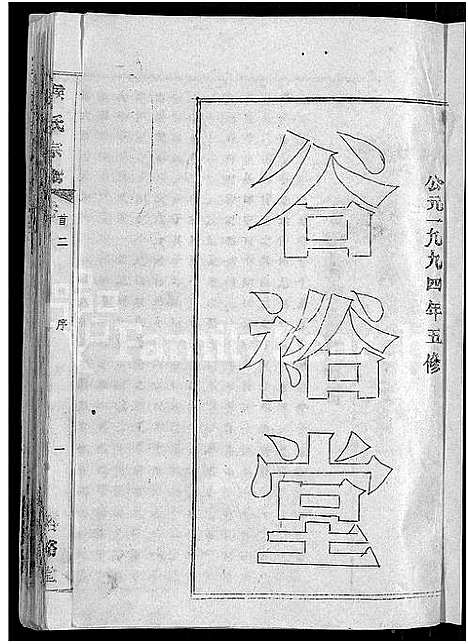 公元一九九四年五修
谷裕堂
氏宗
首二
序
一
裕堂